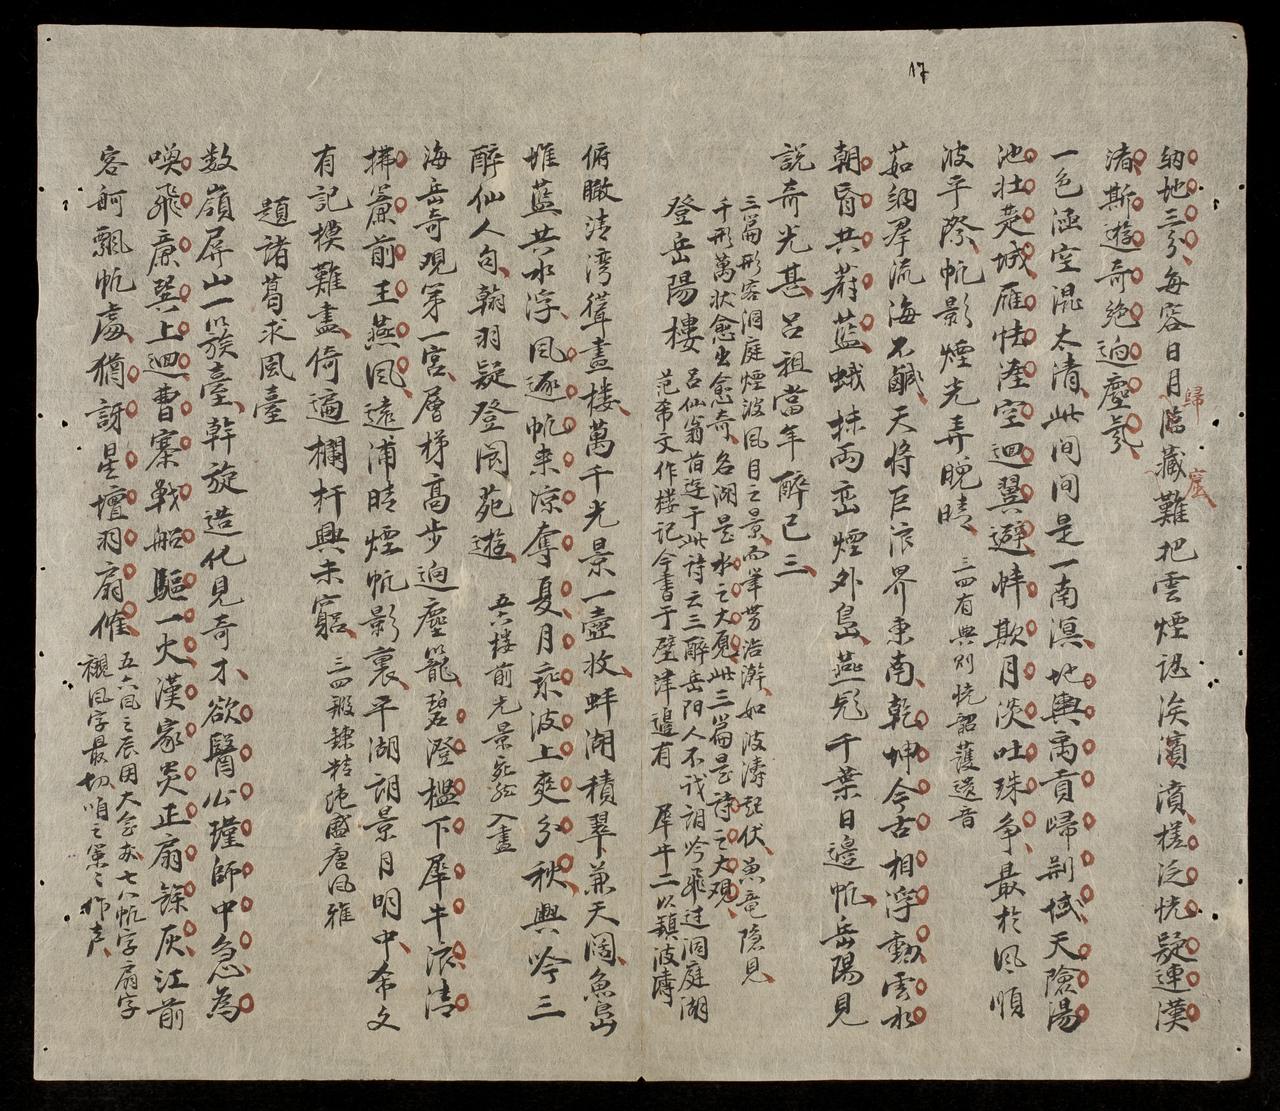 17
納地三分、每容日月臨藏難把雲煙認涘濱濆槎泛恍疑連漢
歸
窟
渚斯遊奇絶逈塵氛
一色涵空混太清、此間間是一南溟、地輿禹貢歸荆域天險湯
池壯楚城雁怯溼空廻翼避蚌欺月淡吐珠争、最於風順
波平際、帆影煙光弄晚晴、三四有典則恍韶護遺音
茹納羣流海不鹹、天將巨浪界東南、乾坤今古相浮動雲水
朝昏共蔚藍蛾抹兩峦煙外島、燕飛千葉日邊帆岳陽見
說奇光甚、呂祖當年醉已三、
三篇形容洞庭煙波風月之景而筆勢浩瀚、如波濤起伏魚竜隱見、
千形萬状愈出愈奇、名湖是水之大觀此三篇是詩之大观、
登岳陽樓 呂仙翁昔遊于此詩云三醉岳阳人不识朗吟飛过洞庭湖
范希文作楼記今書于壁津邊有犀牛二以鎮波濤
俯瞰清湾聳畫楼、萬千光景一壺收、蚌湖積翠兼天闊、魚島
堆藍共水浮、風逐帆来凉奪夏、月乘波上爽分秋、興吟三
醉仙人句、翰羽疑登閬苑遊、五六楼前光景宛然入畫
海岳奇观第一宮、層梯高步逈塵籠、碧澄檻下犀牛浪清
拂簾前玉燕風、遠浦晴煙帆影裏、平湖朗景月明中、希文
有記模難盡、倚遍欄杆興未窮、三四鍛鍊精純盛唐風雅
題諸葛求風臺
数嶺屏山一簇臺、斡旋造化見奇才、欲醫公瑾師中急、為
喚飛廉巽上廻曹寨戰船驅一火漢家炎正扇餘灰江前
客舸飄帆處、猶訝星壇羽扇催、五六風之辰因大会亦七八帆字扇字
襯风字最切、咱之策々作声、